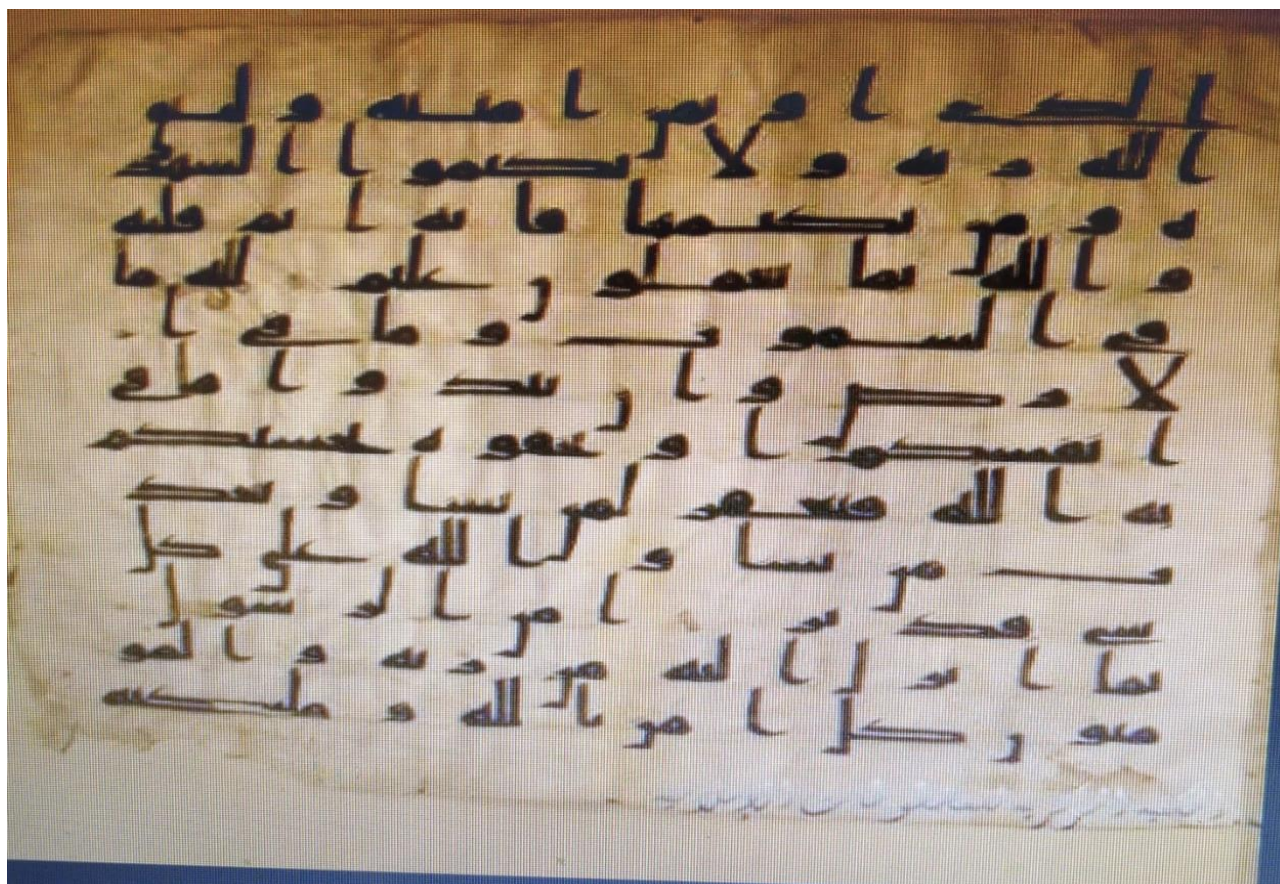 الذي اوتمن امنته وليتق
الله ربه ولا تكتموا الشهد
ه ومن يكتمها فانه اثم قلبه
والله بما تعملون عليم لله ما
في السموت وما في ا
لارض وان تبدوا ما في
انفسكم او تخفوه يحسبكم
به الله فيغفر لمن يشا ويعذ
ب من يشا والله على كل
شي قدير امن الرسول
بما انزل اليه من ربه والمو
منون كل امن بالله وملئكته